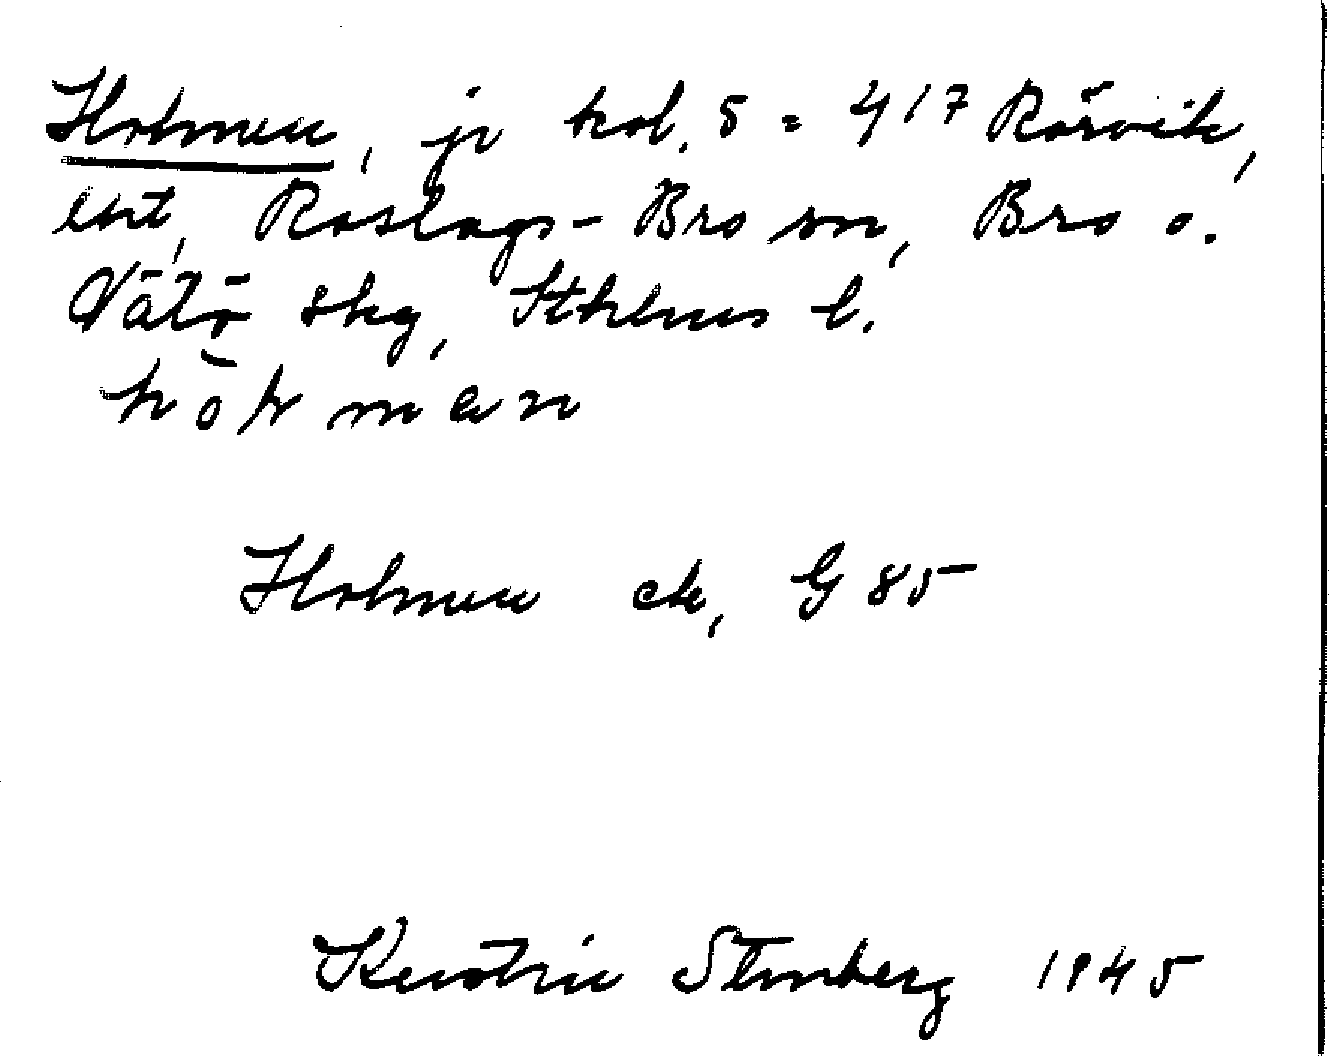 Holmen, jr kol. 5 = 4/17 Rörvik,
ent, Roslags-Bro sn, Bro o.
Vätö skg, Sthlms l.
hòlman
Holmen ek, G 85
Kerstin Stenberg 1945